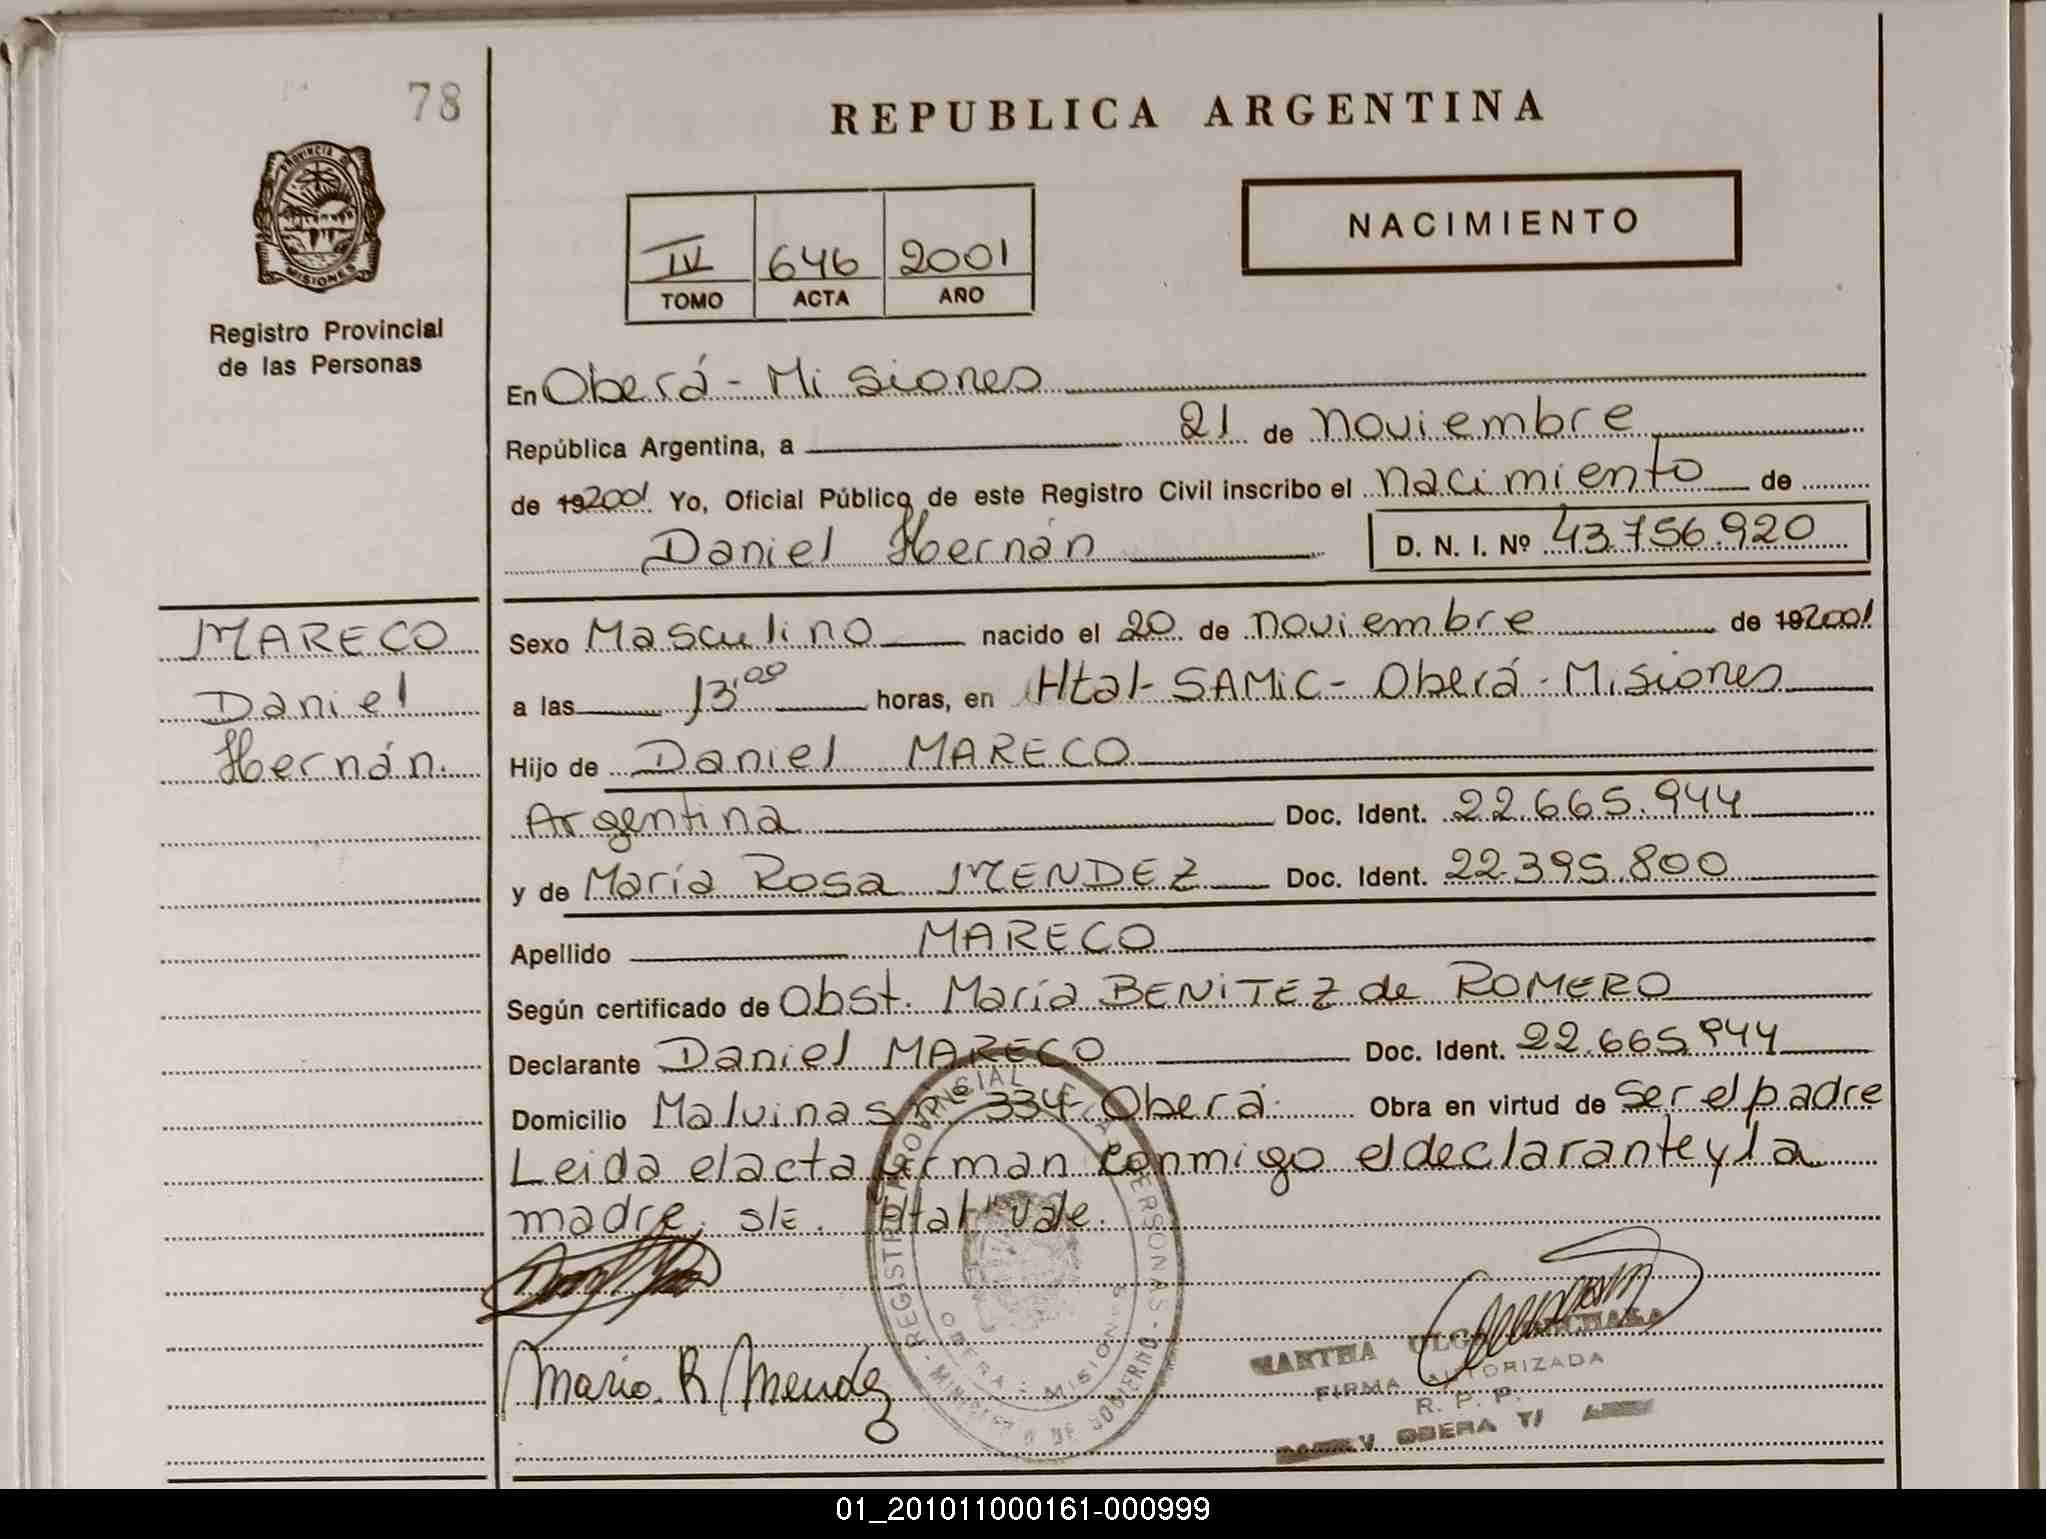 78
REPUBLICA ARGENTINA
PROVINCIA D
MISIONES
Registro Provincial
de las Personas
IV 646 2001
TOMO ACTA AÑO
NACIMIENTO
En Oberá - Misiones
República Argentina, a 21 de Noviembre
de 192001 Yo, Oficial Público de este Registro Civil inscribo el Nacimiento de
Daniel Hernán D. N. I. Nº 43.756.920
MARECO
Daniel
Hernán.
Sexo Masculino nacido el 20 de Noviembre de 192001
a las 13:00 horas, en Htal - SAMiC - Oberá - Misiones
Hijo de Daniel MARECO
Argentina Doc. Ident. 22.665.944
y de María Rosa MENDEZ Doc. Ident. 22.395.800
Apellido MARECO
Según certificado de Obst. María BENiTEZ de ROMERO
Declarante Daniel MARECO Doc. Ident. 22.665.944
Domicilio Malvinas nº 334 - Oberá Obra en virtud de ser el padre
Leida el acta firman conmigo el declarante y la
madre. S/E. Htal vale.
REGISTRO PROVINCIAL DE LAS PERSONAS - MINISTERIO DE GOBIERNO
OBERA - MISIONES
Maria. R Mendez
MARTHA OLGA
FIRMA AUTORIZADA
R. P. P.
OBERA
01_201011000161-000999